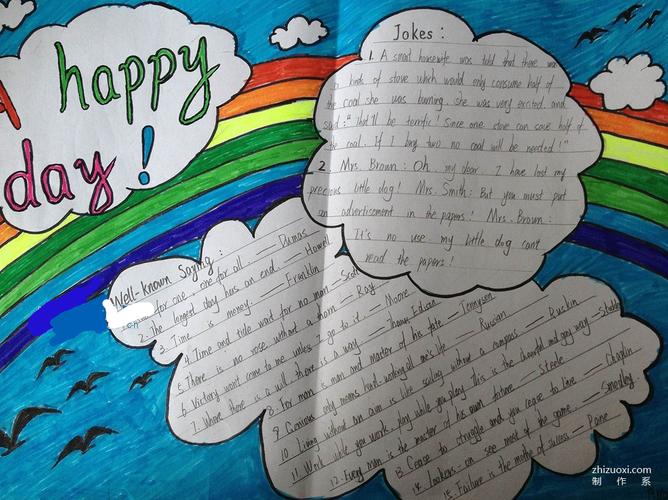 A happy
day!
Jokes:
1. A smart housewife was told that there was
a kind of stove which would only consume half of
the coal she was burning. she was very excited and
said: "That'll be terrific! Since one stove can save half of
the coal. If I buy two no coal will be needed!"
2 Mrs. Brown: Oh, my dear, I have lost my
precious little dog! Mrs. Smith: But you must put
an advertisement in the papers! Mrs. Brown:
It's no use, my little dog can't
read the papers!
Well-known Saying:
for one, one for all. — Dumas
2. The longest day has an end. — Howell
3. Time is money. — Franklin
4. Time and tide wait for no man. — Scott
5. There is no rose without a thorn — Ray
6. Victory won't come to me unless I go to it. — Moore
7. Where there is a will, there is a way — Thomas Edison
8. For man is man and master of his fate. — Tennyson
9 Genius only means hard-working all one's life — Russian
10 Living without an aim is like sailing without a compass — Ruskin
11 Work while you work, play while you play. This is the cheerful and gay way —
12. Every man is the master of his own fortune — Steele
13 Cease to struggle and you cease to live. — Chaplin
14. Lookers-on see most of the game. — Smedley
15. Failure is the mother of success — Paine
zhizuoxi.com
制作系